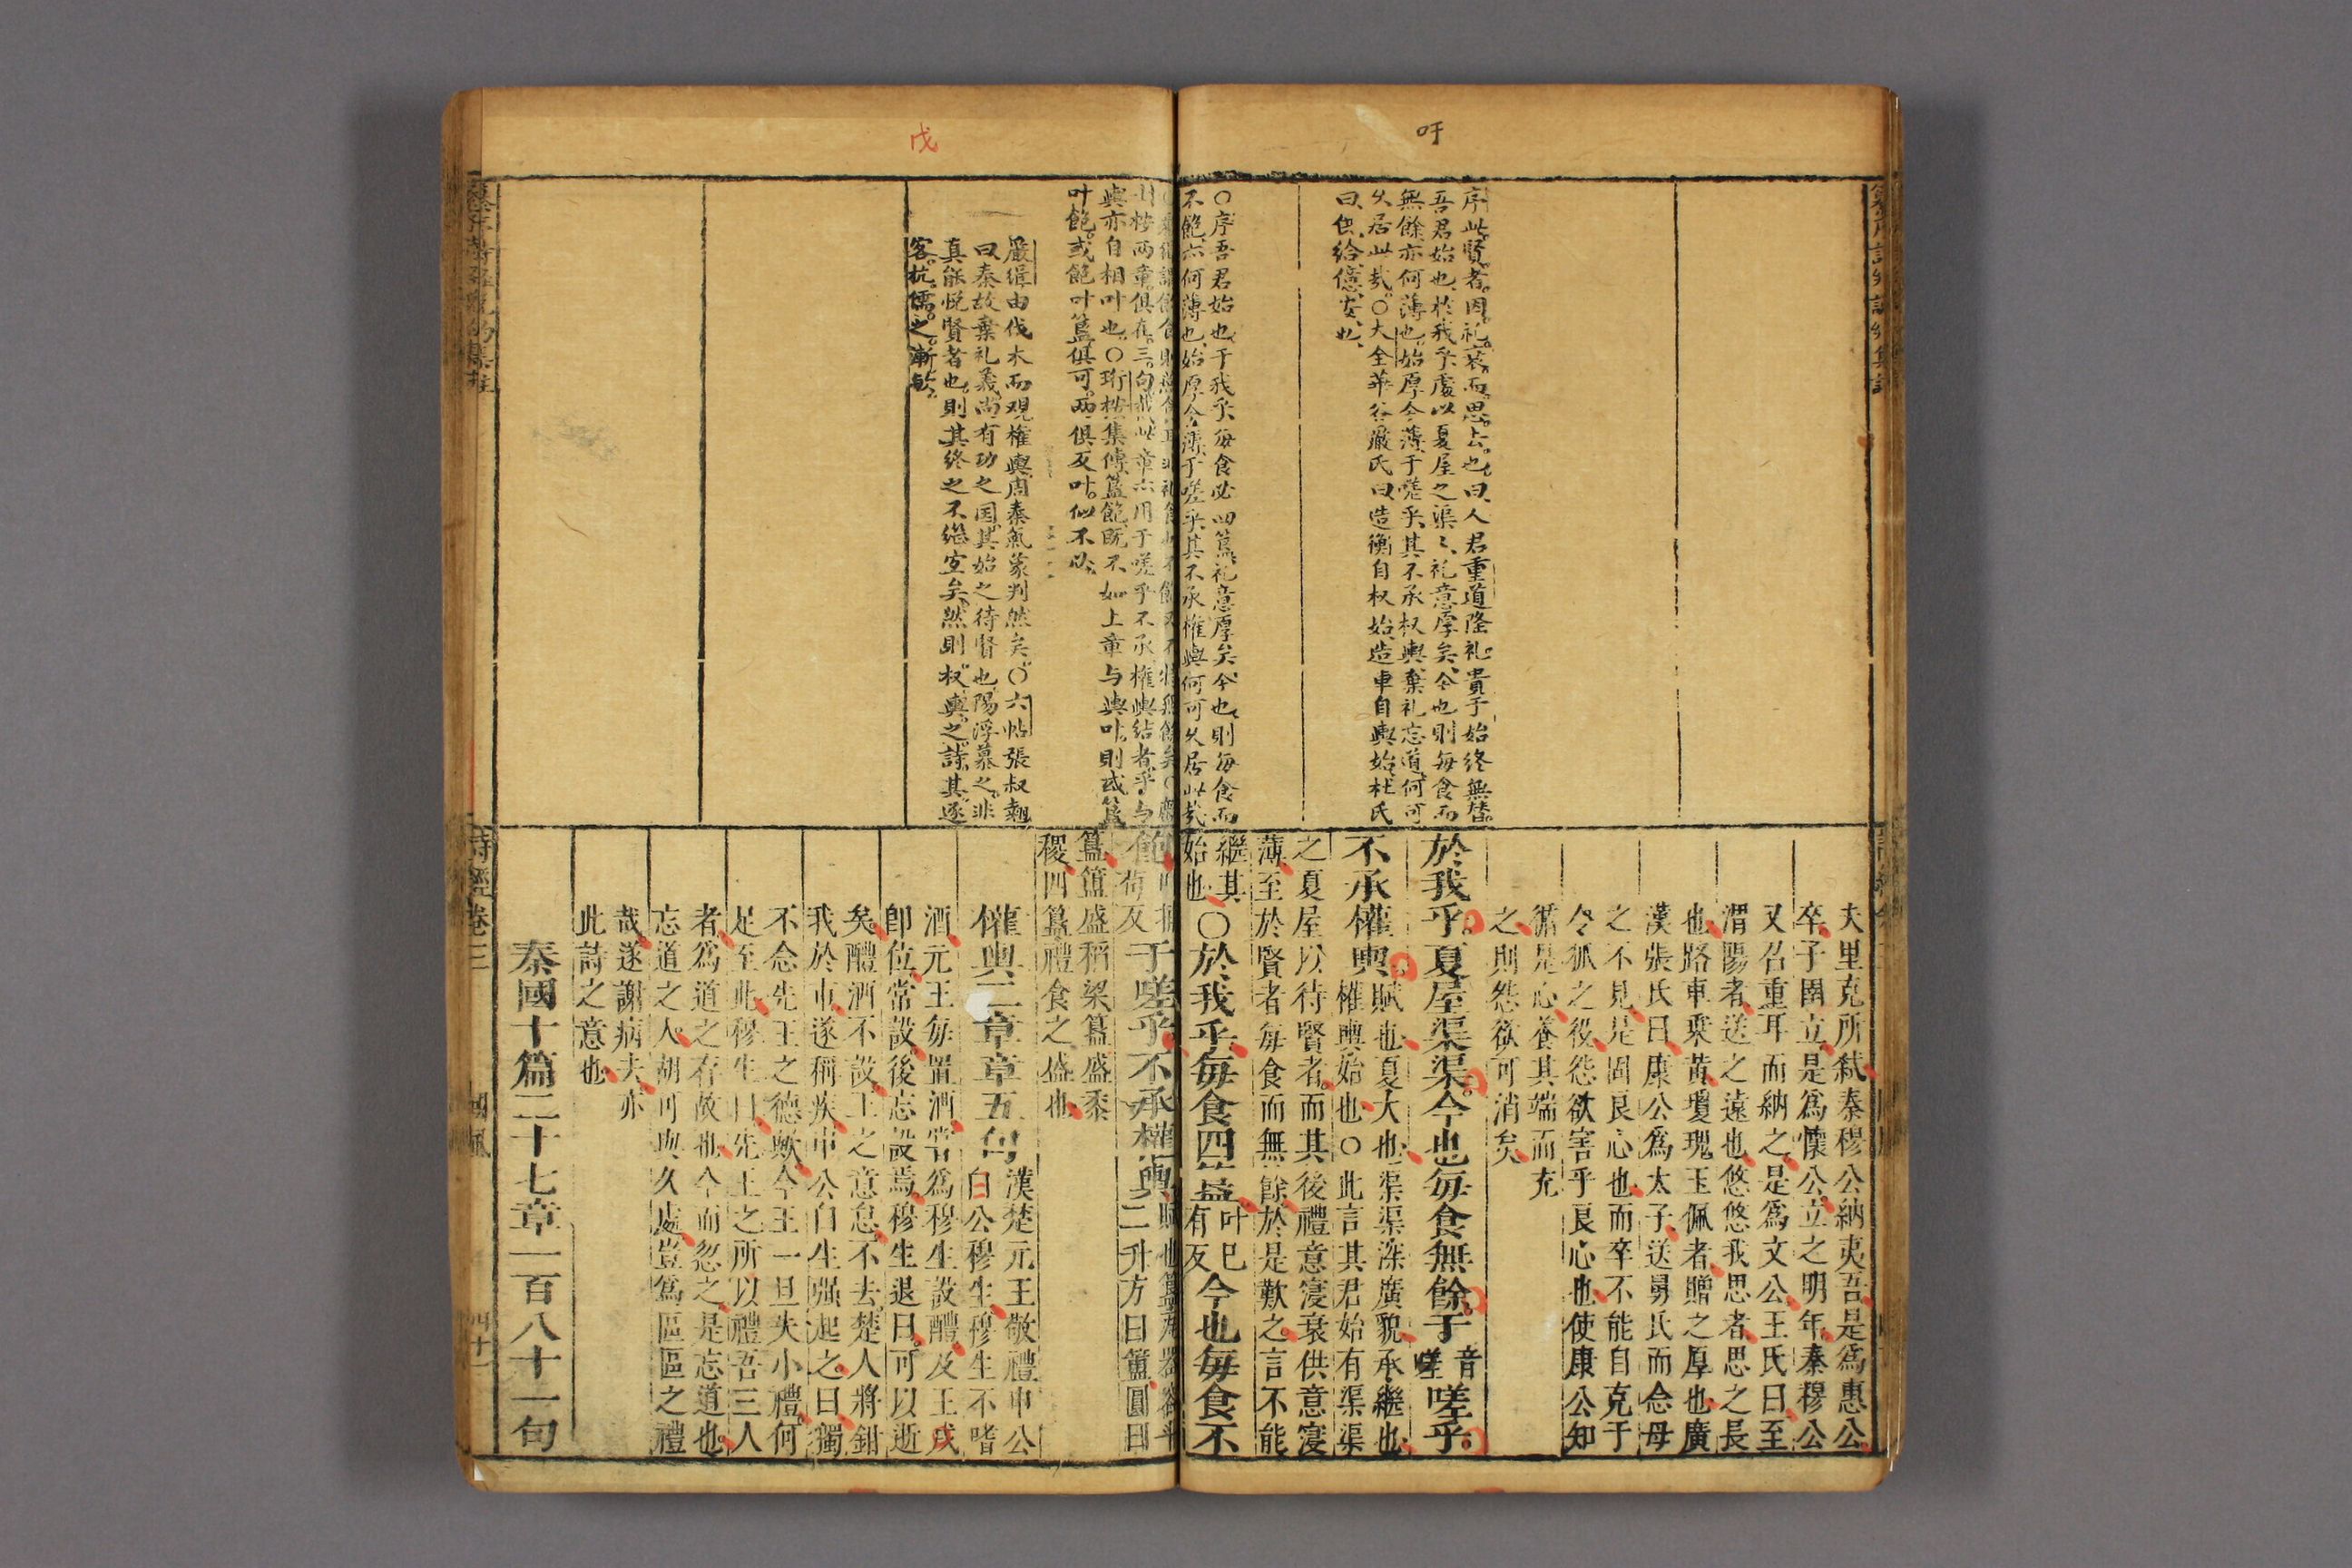 吁
序此賢者因礼衰而思去也曰人君重道隆礼貴于始終無替
吾君始也於我乎處以夏屋之渠〻礼意厚矣今也則每食而
無餘亦何薄也始厚今薄于嗟乎其不承权輿棄礼忘道何可
久居此哉○大全華谷嚴氏曰造衡自权始造車自輿始杜氏
曰供給億安也
○序吾君始也于我乎每食必四簋礼意厚矣今也則每食而
不飽亦何薄也始厚今薄于嗟乎其不承權輿何可久居此哉
夫里克所弑秦穆公納夷吾是爲惠公
卒子圉立是爲懷公立之明年秦穆公
又召重耳而納之是爲文公王氏曰至
渭陽者送之遠也悠悠我思者思之長
也路車乘黃瓊瑰玉佩者贈之厚也廣
漢張氏曰康公爲太子送舅氏而念母
之不見是固良心也而卒不能自克于
令狐之役怨欲害乎良心也使康公知
循是心養其端而充
之則怨欲可消矣
於我乎夏屋渠渠今也每食無餘于音嗟嗟乎
不承權輿賦也夏大也渠渠深廣貌承繼也
權輿始也○此言其君始有渠渠
之夏屋以待賢者而其後禮意寖衰供意寖
薄至於賢者每食而無餘於是歎之言不能
繼其
始也○於我乎每食四簋叶已有反今也每食不
戊
與亦自相叶也○珩按集傳簋飽既不如上章与輿叶則或簋
叶飽或飽叶簋俱可兩俱反叶似不必
嚴緝由伐木而观權輿周秦氣象判然矣○六帖張叔翹
曰秦故棄礼義尚有功之国其始之待賢也陽浮慕之非
真能悦賢者也則其終之不繼宜矣然則权輿之詩其逐
客坑儒之漸欤
于嗟乎不承權輿
二升方曰簠圓曰
簋簠盛稻梁簋盛黍
稷四簋禮食之盛也
權輿二章章五句漢楚元王敬禮申公
白公穆生穆生不嗜
酒元王每置酒嘗爲穆生設醴及王戊
卽位常設後忘設焉穆生退曰可以逝
矣醴酒不設王之意怠不去楚人將鉗
我於市遂稱疾申公白生强起之曰獨
不念先王之德歟今王一旦失小禮何
足至此穆生曰先王之所以禮吾三人
者爲道之存故也今而忽之是忘道也
忘道之人胡可與久處豈爲區區之禮
哉遂謝病去亦
此詩之意也
秦國十篇二十七章一百八十一句
詩經卷三
國風
四十一